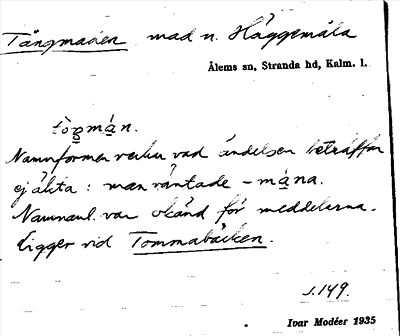 Tångmaden mad n. Häggemåla
Ålems sn, Stranda hd, Kalm. l.
tògmá̱n.
Namnformen verkar vad ändelsen beträffar
ej äkta: man väntade -má̱na.
Namnanl. var okänd för meddelarna.
Ligger vid Tommabäcken.
s. 149.
Ivar Modéer 1935